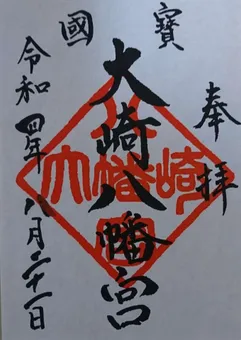 奉拝
國寶
大崎八幡宮
大崎八幡宮
令和四年八月二十一日